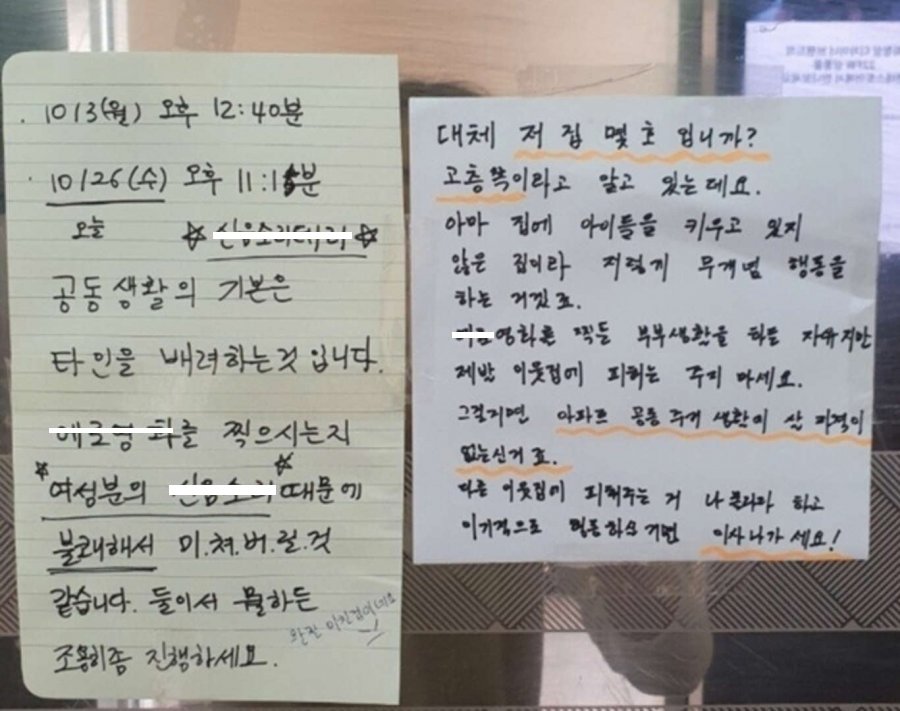 10/3(월) 오후 12:40분
10/26(수) 오후 11:15분
오늘
공동생활의 기본은
타인을 배려하는것 입니다.
찍으시는지
여성분의 때문에
불쾌해서 미.쳐.버.릴.것
같습니다. 둘이서 뭘하든
조용히좀 진행하세요.
완전 미친집이네요
대체 저 집 몇 호 입니까?
고층쪽이라고 알고 있는데요.
아마 집에 아이들을 키우고 있지
않은 집이라 저렇게 무개념 행동을
하는 거겠죠.
영화를 찍든 부부생활을 하든 자유지만
제발 이웃집에 피해는 주지 마세요.
그럴거면 아파트 공동 주거 생활에 살 자격이
없는신거죠.
다른 이웃집에 피해주는 거 나 몰라라 하고
이기적으로 행동하실거면 이사나가세요!